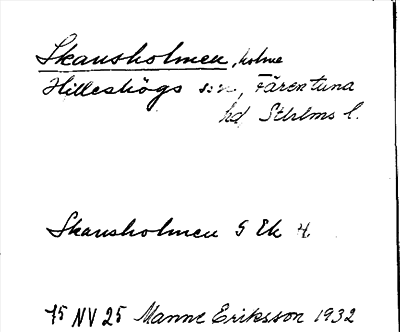 Skansholmen, holme
Hilleshögs sn, Färentuna
hd Sthlms l.
Skansholmen 5 Ek 4
75 NV 25 Manne Eriksson 1932